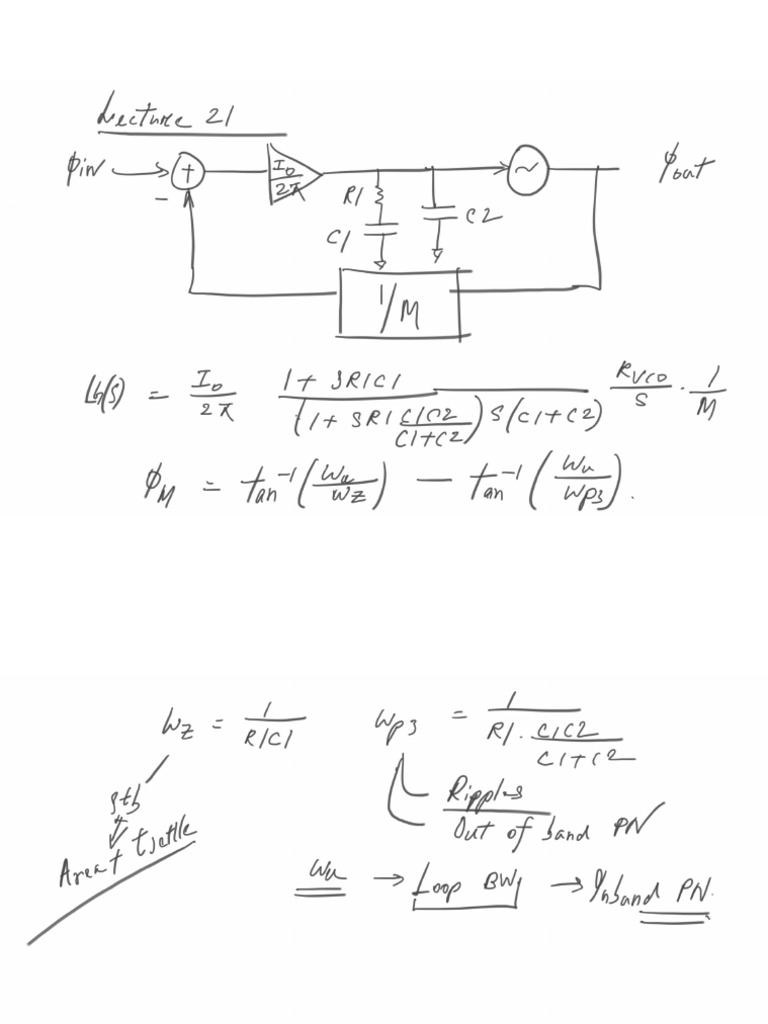 Lecture 21
φin + I0/2π ~ φout
−
R1
C1 C2
1/M
LG(s) = I0/2π (1 + SR1C1)/((1 + SR1 C1C2/(C1+C2)) S(C1+C2)) KVCO/S · 1/M
φM = tan⁻¹(ωu/ωz) − tan⁻¹(ωu/ωp3).
ωz = 1/(R1C1) ωp3 = 1/(R1 · C1C2/(C1+C2))
stb
Ripples
Out of band PN
Area tsettle
ωu → Loop BW → Inband PN.